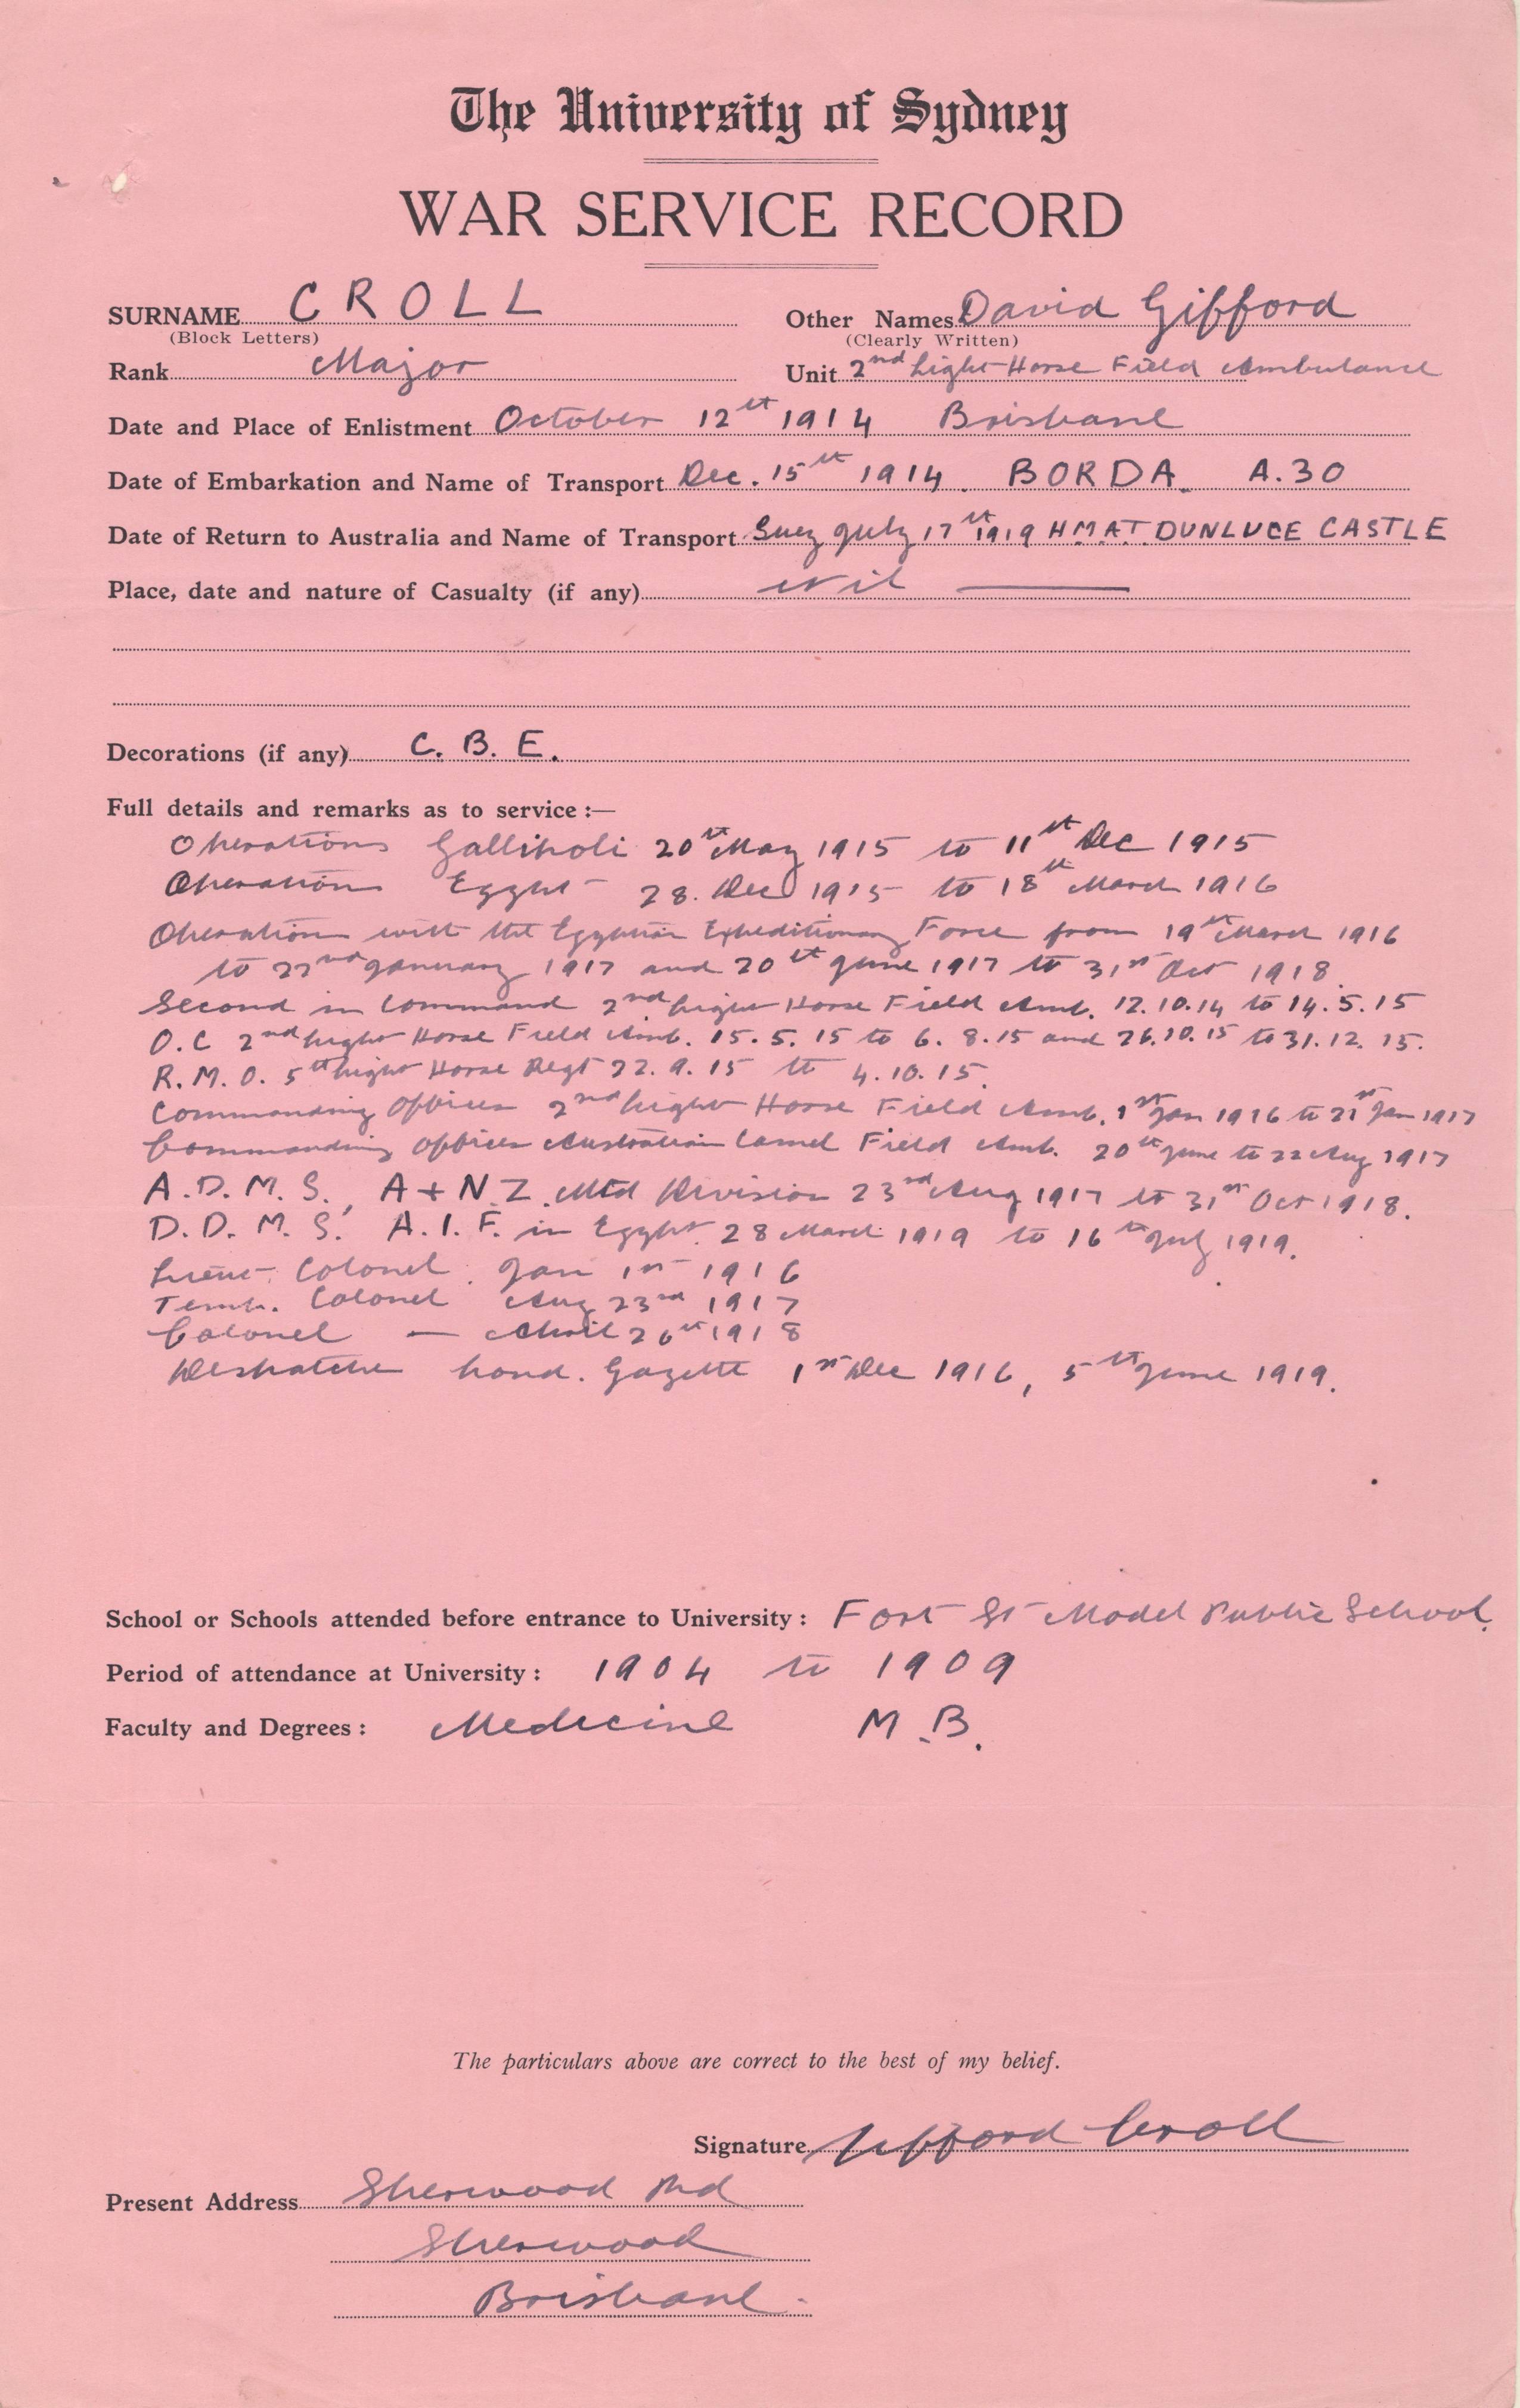 The University of Sydney
WAR SERVICE RECORD
SURNAME CROLL Other Names David Gifford
(Block Letters) (Clearly Written)
Rank Major Unit 2nd Light Horse Field Ambulance
Date and Place of Enlistment October 12th 1914 Brisbane
Date of Embarkation and Name of Transport Dec. 15th 1914. BORDA. A.30
Date of Return to Australia and Name of Transport Suez July 17th 1919 H.M.A.T. DUNLUCE CASTLE
Place, date and nature of Casualty (if any) Nil —
Decorations (if any) C. B. E.
Full details and remarks as to service :—
Operations Gallipoli 20th May 1915 to 11th Dec 1915
Operations Egypt 28. Dec 1915 to 18th March 1916
Operation with the Egyptian Expeditionary Force from 19th March 1916
to 22nd January 1917 and 20th June 1917 to 31st Oct 1918.
Second in Command 2nd Light Horse Field Amb. 12.10.14 to 14.5.15
O.C 2nd Light Horse Field Amb. 15.5.15 to 6.8.15 and 26.10.15 to 31.12.15.
R.M.O. 5th Light Horse Regt 22.9.15 to 4.10.15.
Commanding Officer 2nd Light Horse Field Amb. 1st Jan 1916 to 21st Jan 1917
Commanding Officer Australian Camel Field Amb. 20th June to 22 Aug 1917
A.D.M.S., A + N.Z. Mtd Division 23rd Aug 1917 to 31st Oct 1918.
D.D.M.S. A.I.F. in Egypt. 28 March 1919 to 16th July 1919.
Lieut. Colonel. Jan 1st 1916
Temp. Colonel Aug 23rd 1917
Colonel — April 26th 1918
Despatches Lond. Gazette 1st Dec 1916, 5th June 1919.
School or Schools attended before entrance to University : Fort St Model Public School.
Period of attendance at University : 1904 to 1909
Faculty and Degrees : Medicine M.B.
The particulars above are correct to the best of my belief.
Signature Gifford Croll
Present Address Sherwood Rd
Sherwood
Brisbane.